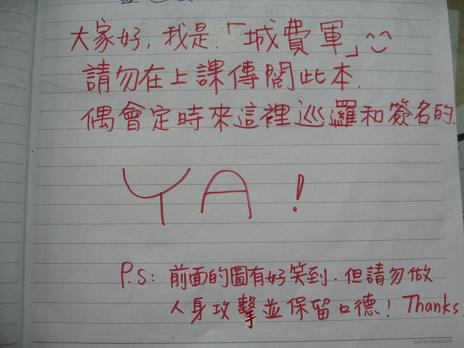 大家好,我是「城費軍」^^
請勿在上課傳閱此本.
偶會定時來這裡巡邏和簽名的.
YA!
P.S: 前面的圖有好笑到.但請勿做
人身攻擊並保留口德! Thanks